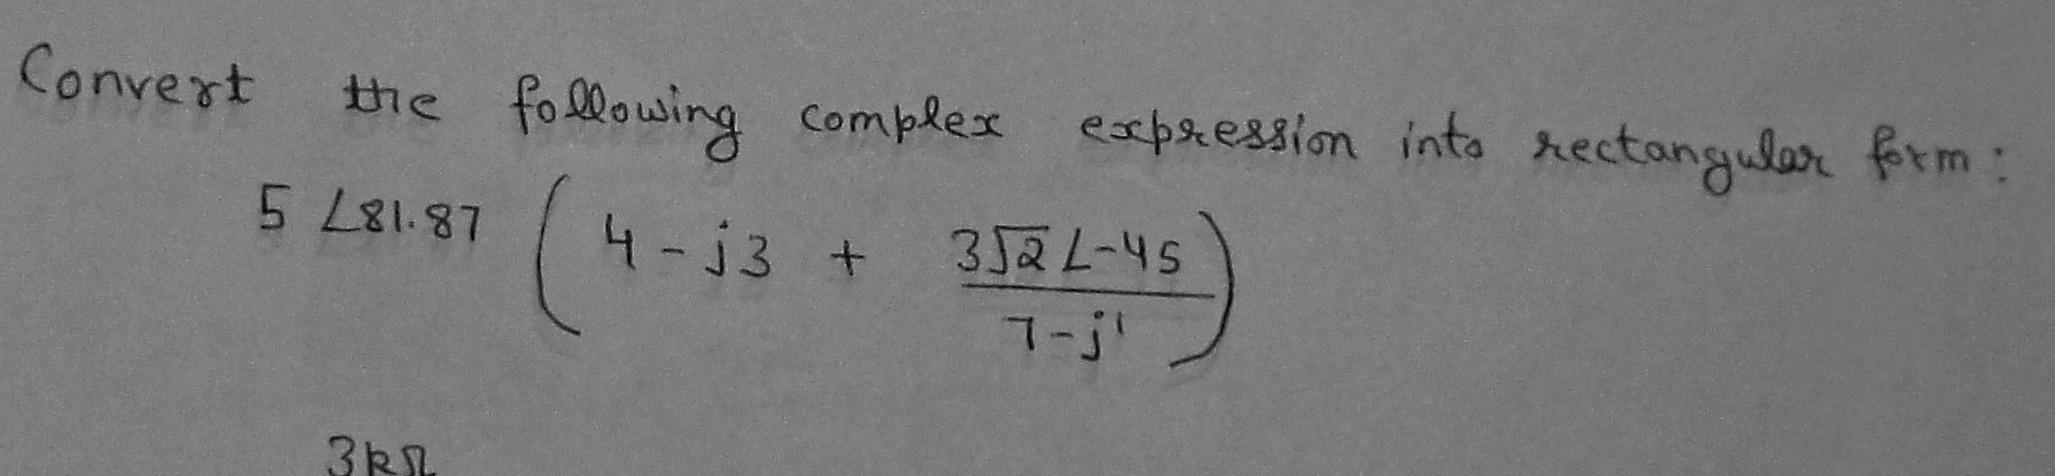 Convert the following complex expression into rectangular form :
5 ∠81.87 ( 4 - j3 + 3√2 ∠-45 / 7 - j1 )
3kΩ